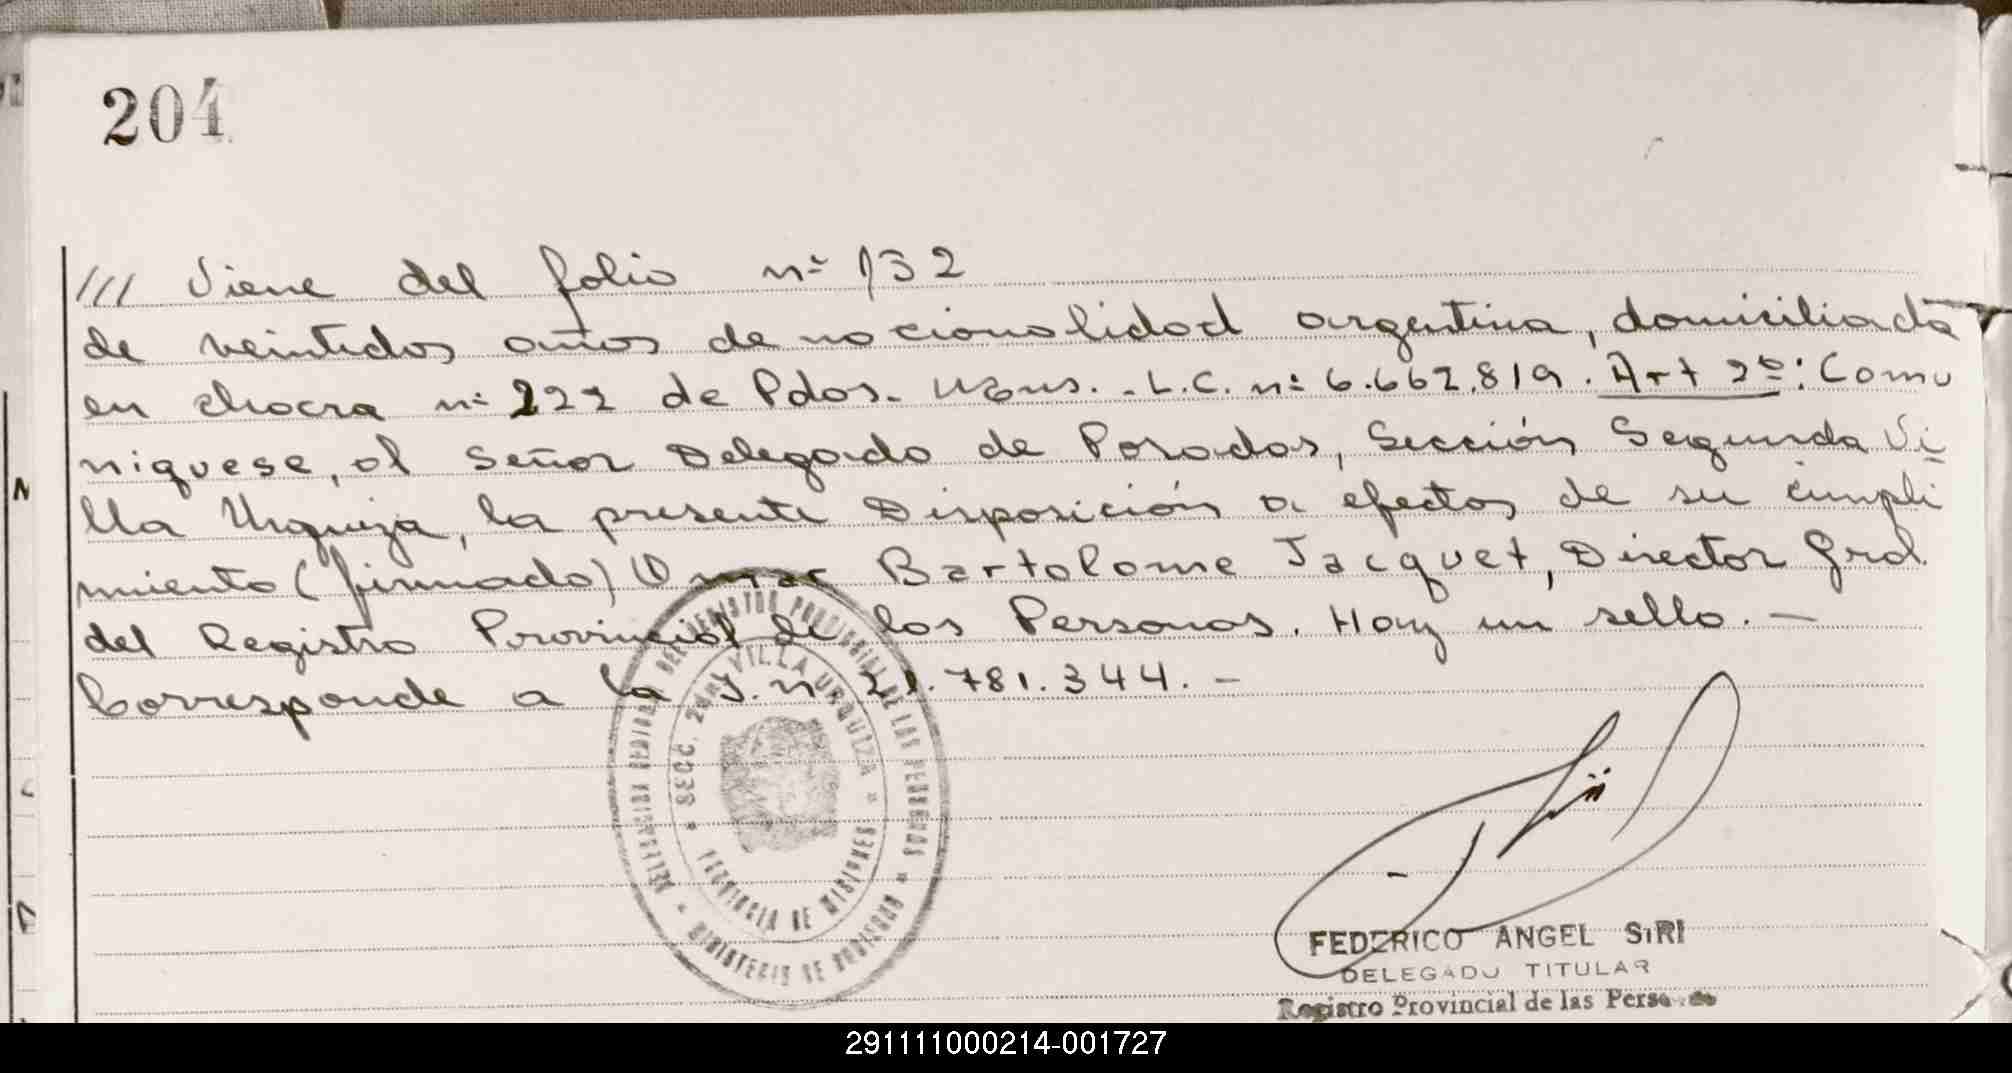 204
/// Viene del folio nº 132
de veintidos años de nacionalidad argentina, domiciliada
en chacra nº 222 de Pdas. Mnes. - L.C. nº 6.662.819. Art 2º: Comu
niquese, al Señor Delegado de Posadas, Sección Segunda Vi
lla Urquiza, la presente Disposición a efectos de su cumpli
miento (firmado) Omar Bartolome Jacquet, Director Gral.
del Registro Provincial de las Personas. Hay un sello. —
Corresponde a la I. nº 21.781.344. —
REGISTRO PROVINCIAL DE LAS PERSONAS
SECC. 2da. VILLA URQUIZA
PROVINCIA DE MISIONES
MINISTERIO DE GOBIERNO
FEDERICO ANGEL SIRI
DELEGADO TITULAR
Registro Provincial de las Personas
291111000214-001727